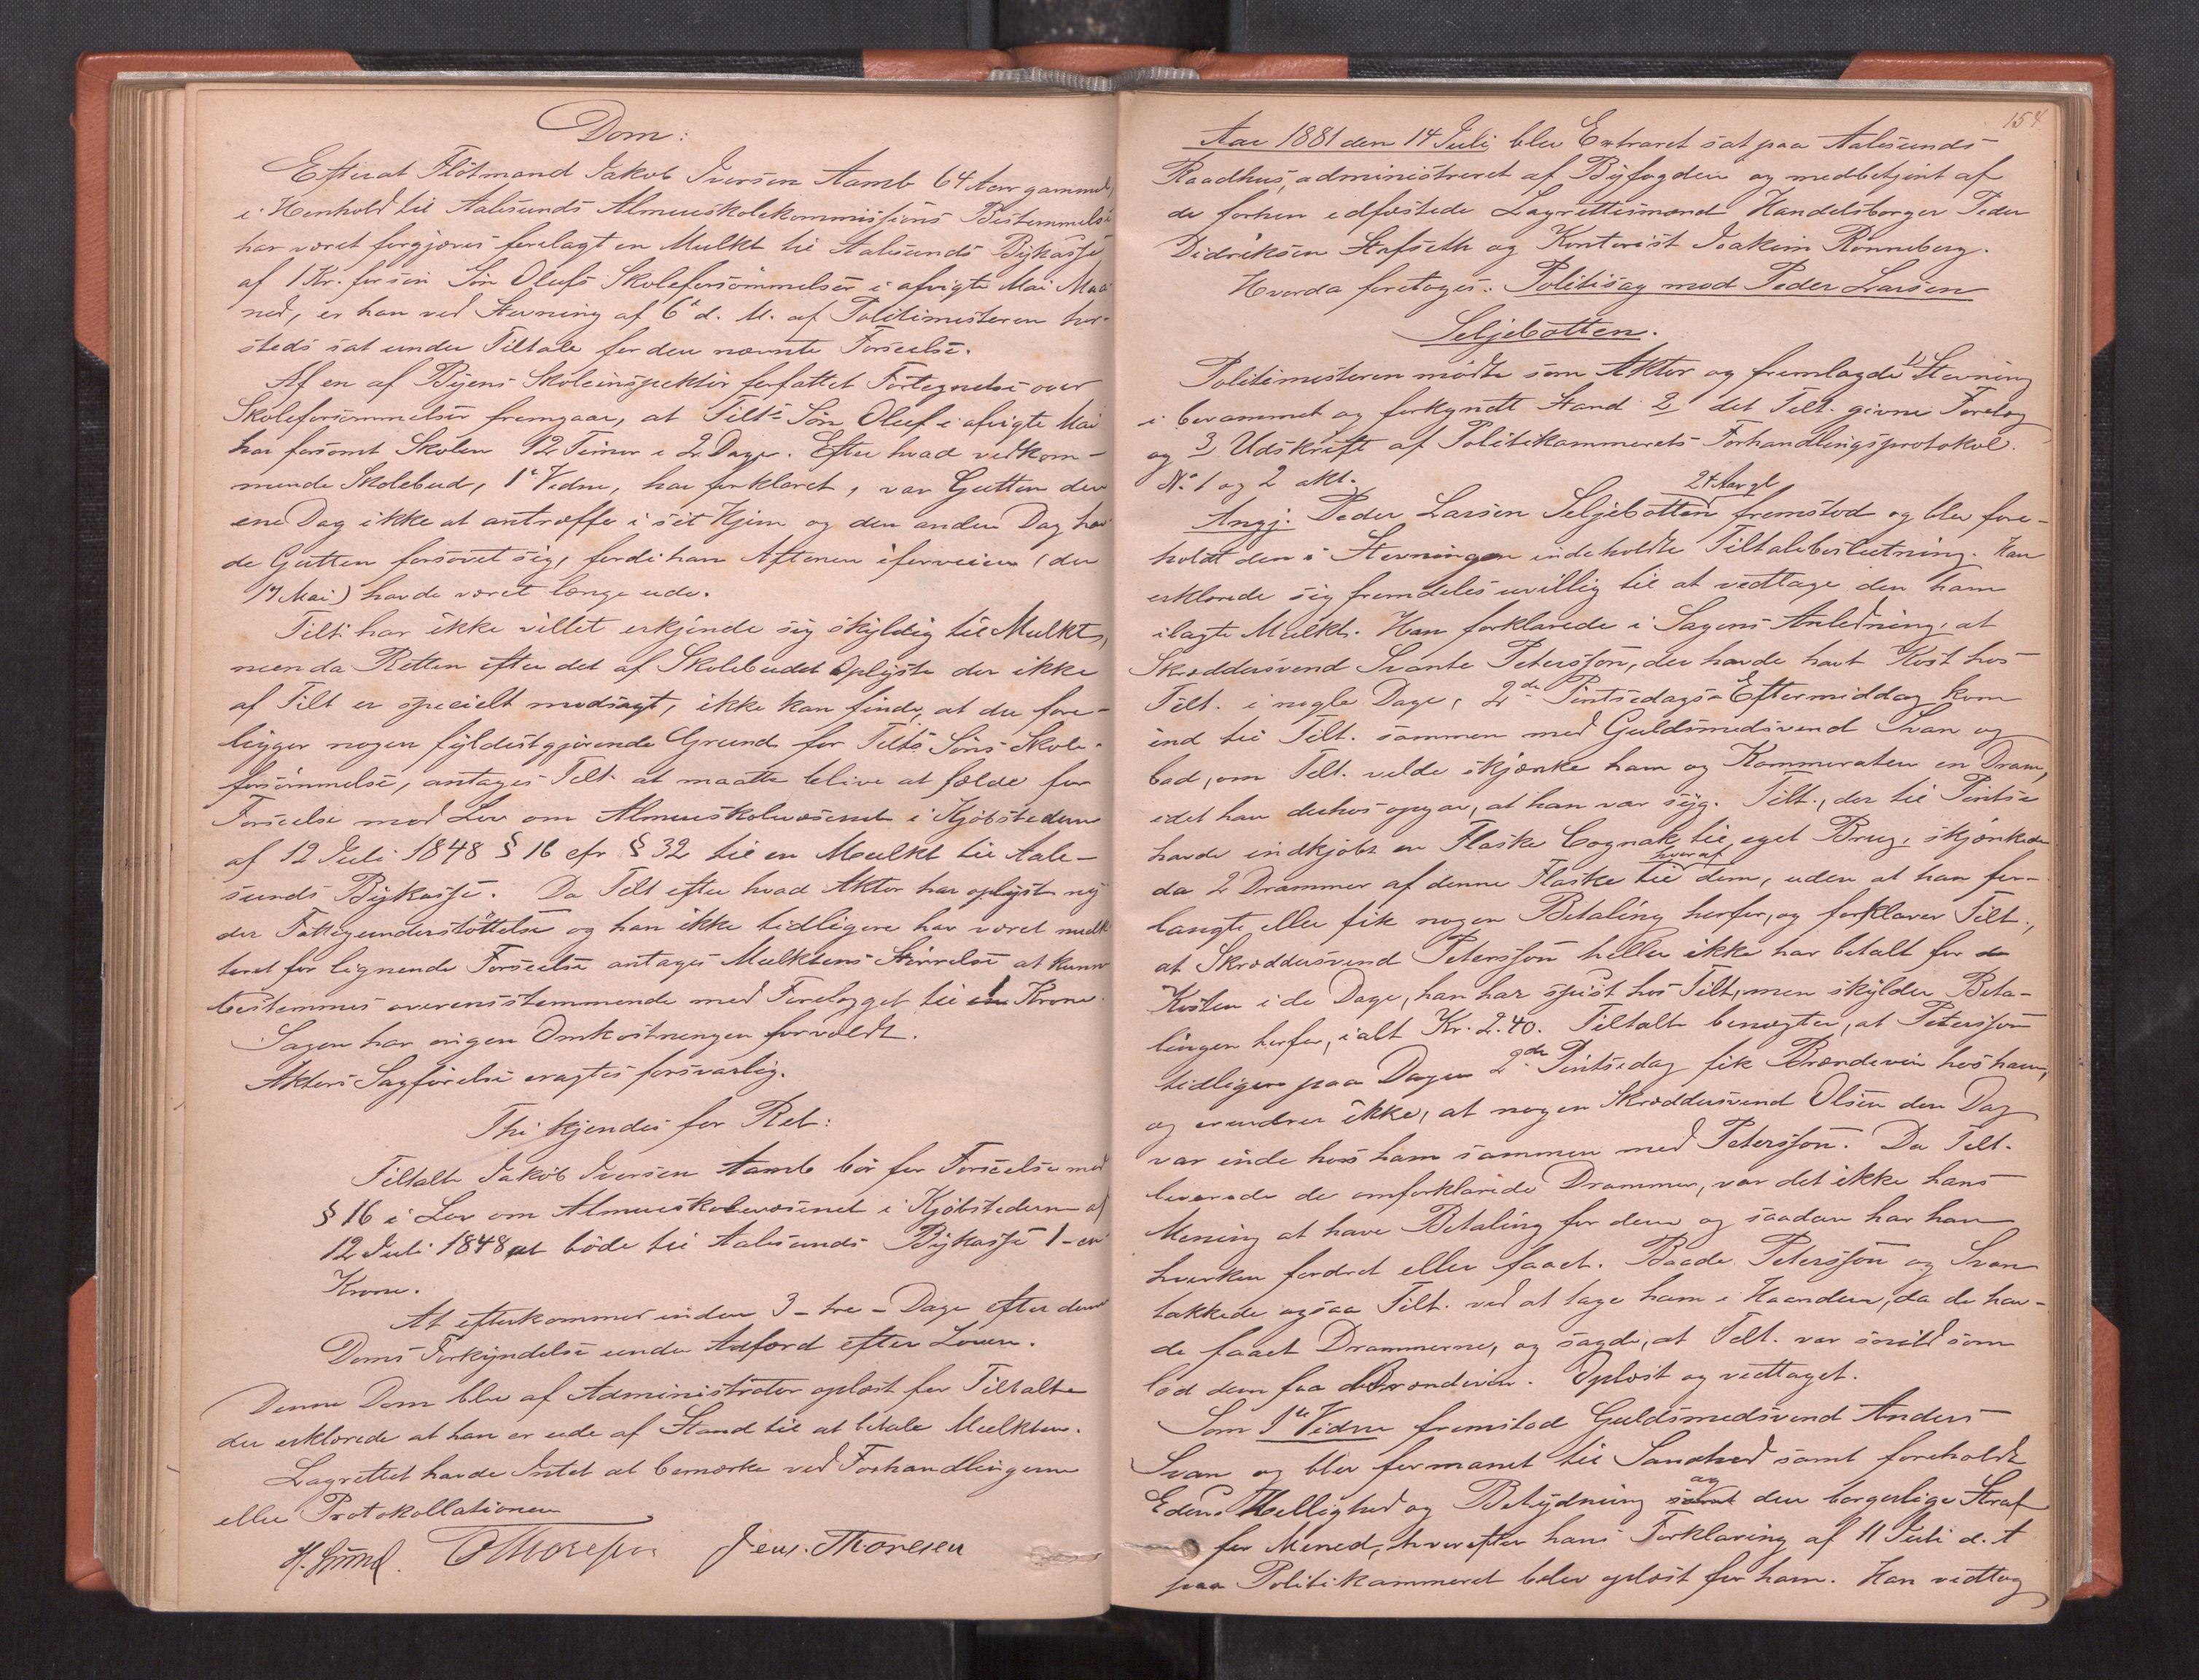 Dom:
Efterat Flötmand Jakob Iversen Aamb 64 Aar gammel,
i Henhold til Aalesunds Almueskolekommissions Bestemmelse
har været forgjæves forelagt en Mulkt til Aalesunds Bykasse
af 1 Kr. for sin Sön Olufs Skoleforsömmelser i afvigte Mai Maa-
ned, er han ved Stevning af 6te d. M. af Politimesteren her-
steds sat under Tiltale for den nævnte Forseelse.
Af en af Byens Skoleinspektör forfattet Fortegnelse over
Skoleforsömmelser fremgaar, at Tilts Sön Oluf i afvigte Mai
har forsömt Skolen 12 Timer i 2 Dage. Efter hvad vedkom-
mende Skolebud, 1te Vidne, har forklaret, var Gutten den
ene Dag ikke at antræffe i sit Hjem og den anden Dag hav-
de Gutten forsovet sig, fordi han Aftenen iforveien (den
17 Mai) havde været længe ude.
Tilt. har ikke villet erkjende sig skyldig til Mulkt,
men da Retten efter det af Skolebudet Oplyste der ikke
af Tilt er specielt modsagt, ikke kan finde, at der fore-
ligger nogen fyldestgjörende Grund for Tilts Söns Skole-
forsömmelse, antages Tilt at maatte blive at fælde for
Forseelse mod Lov om Almueskolevæsenet i Kjöbstederne
af 12 Juli 1848 § 16 cfr § 32 til en Mulkt til Aale-
sunds Bykasse. Da Tilt efter hvad Aktor har oplyst ny-
der Fattigunderstöttelse og han ikke tidligere har været mulk-
teret for lignende Forseelse antages Mulktens Störrelse at kunne
bestemmes overensstemmende med Forelægget til 1 Krone.
Sagen har ingen Omkostninger forvoldt.
Aktors Sagförelse eragtes forsvarlig.
Thi kjendes for Ret:
Tiltalte Jakob Iversen Aamb bör for Forseelse mod
§ 16 i Lov om Almueskolevæsenet i Kjöbstederne af
12 Juli 1848 at böde til Aalesunds Bykasse 1 - en
Krone.
At efterkommes inden 3 - tre - Dage efter denne
Doms Forkyndelse under Adfærd efter Loven.
Denne Dom blev af Administrator oplæst for Tiltalte
der erklærede at han er ude af Stand til at betale Mulkten.
Lagrettet havde Intet at bemærke ved Forhandlingerne
eller Protokollationen
Jens. Thoresen
154
Aar 1881 den 14 Juli blev Extraret sat paa Aalesunds
Raadhus, administreret af Byfogden og medbetjent af
de forhen edfæstede Lagrettesmænd Handelsborger Peder
Didriksen Stafseth og Kontorist Joakim Rönneberg.
Hvorda foretages: Politisag mod Peder Larsen
Seljebotten.
Politimesteren mödte som Aktor og fremlagde 1/ Stevning
i berammet og forkyndt Stand 2 det Tilt. givne Forelæg
og 3 Udskrift af Politikammerets Forhandlingsprotokol.
No 1 og 2 akt.
24 Aar gl
Angj. Peder Larsen Seljebotten fremstod og blev fore-
holdt den i Stevningen indeholdte Tiltalebeslutning. Han
erklærede sig fremdeles uvillig til at vedtage den ham
ilagte Mulkt. Han forklarede i Sagens Anledning, at
Skræddersvend Svante Petersson, der havde havt Kost hos
Tilt. i nogle Dage, 2den Pintsedags Eftermiddag kom
ind til Tilt. sammen med Guldsmedsvend Svan og
bad, om Tilt. vilde skjænke ham og Kammeraten en Dram,
idet han derhos opgav, at han var syg. Tilt., der til Pintse
havde indkjöbt en Flaske Cognak til eget Brug, skjænkede
hver af
da 2 Drammer af denne Flaske til dem, uden at han for-
langte eller fik nogen Betaling herfor, og forklarer Tilt.,
at Skræddersvend Petersson heller ikke har betalt for
Kosten i de Dage, han har spist hos Tilt, men skylder Beta-
lingen herfor, ialt Kr. 2.40. Tiltalte benægter, at Petersson
tidligere paa Dagen 2den Pintsedag fik Brændevin hos ham,
og erindrer ikke, at nogen Skræddersvend Olsen den Dag
var inde hos ham sammen med Petersson. Da Tilt.
leverede de omforklarede Drammer, var det ikke hans
Mening at have Betaling for dem og saadan har han
hverken fordret eller faaet. Baade Petersson og Svan
takkede ogsaa Tilt. ved at tage ham i Haanden, da de hav-
de faaet Drammerne, og sagde, at Tilt. var snild som
lod dem faa Brændevin. Oplæst og vedtaget.
Som 1te Vidne fremstod Guldsmedsvend Anders
Svan og blev formanet til Sandhed samt foreholdt
og
Edens Hellighed og Betydning samt den borgerlige Straf
for Mened, hvorefter hans Forklaring af 11 Juli d. A
paa Politikammeret blev oplæst for ham. Han vedtog